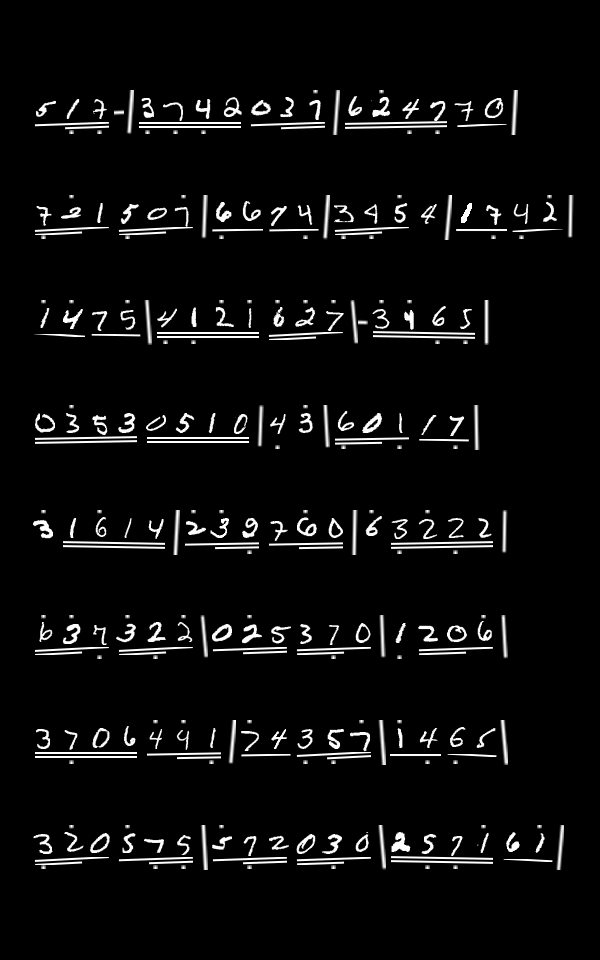 517-|3742037|624770
721507|6674|3454|1742
1475|4121627|-3465
03530510|43|60117
31614|239760|63222
637322|025370|1206
3706491|74357|1465
320575|572030|257161